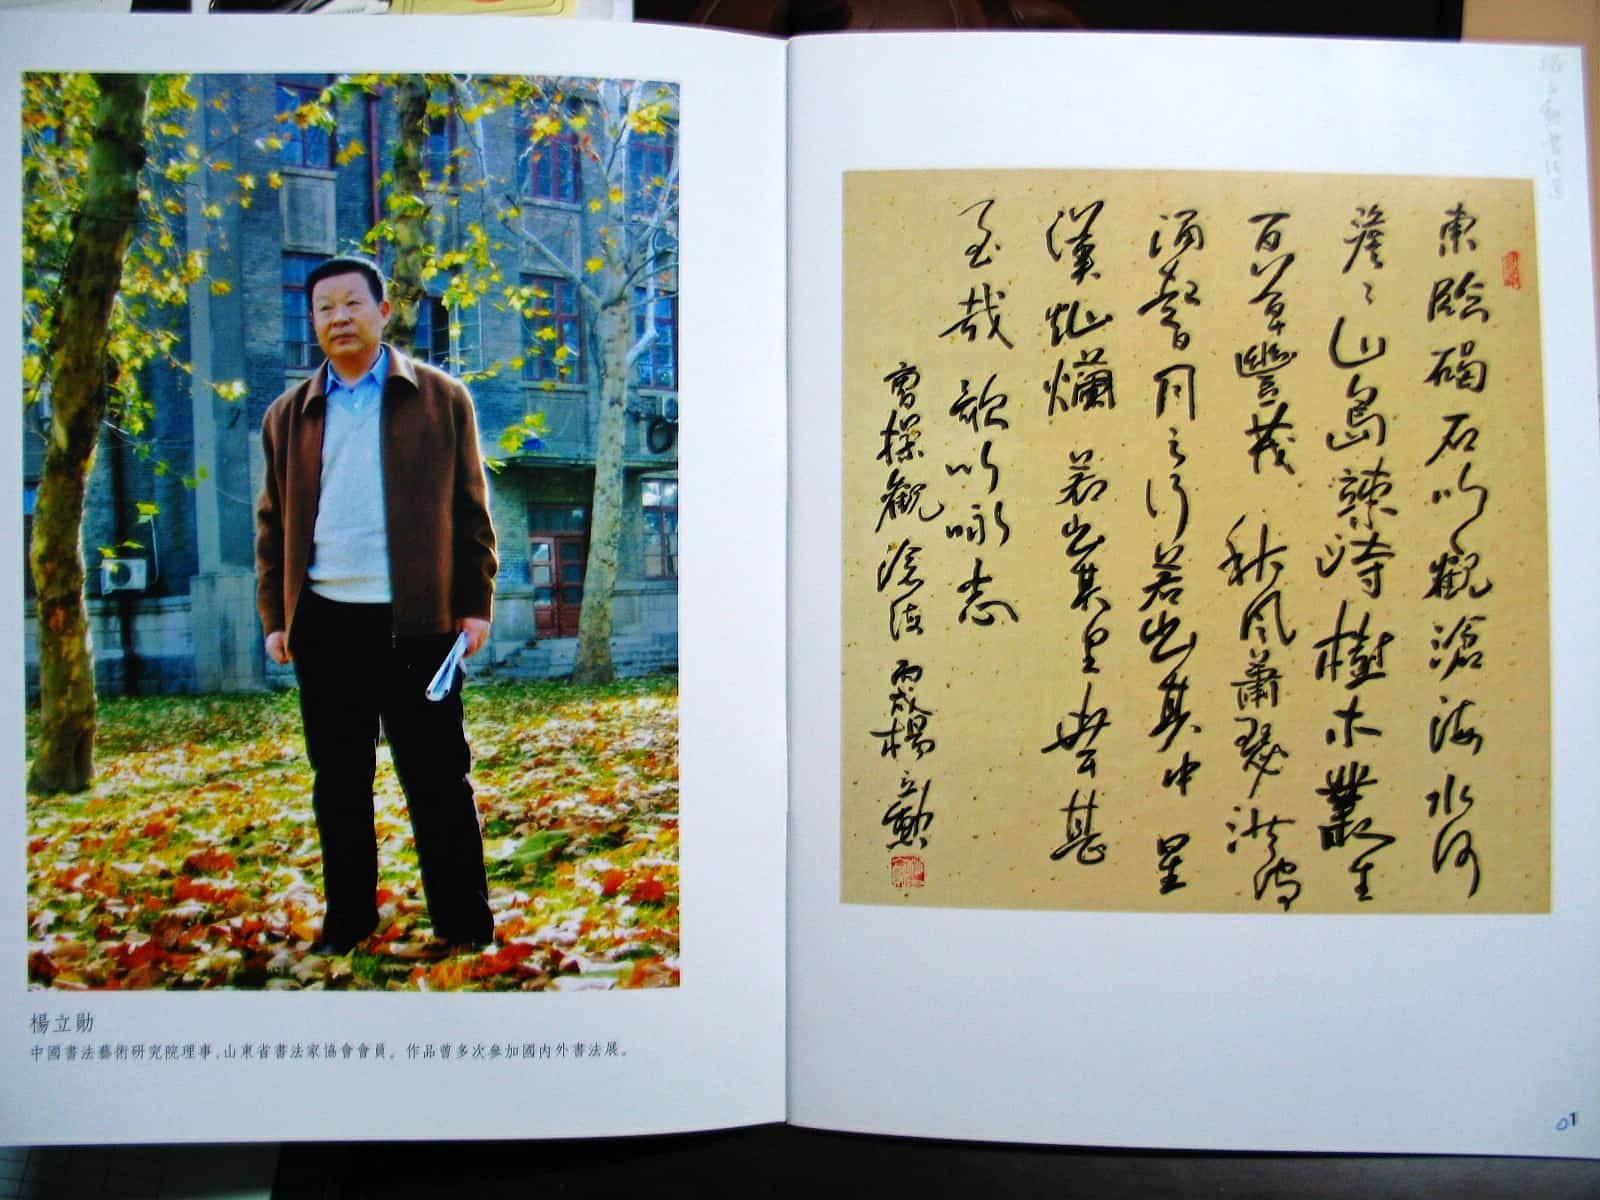 楊立勛
中國書法藝術研究院理事,山東省書法家協會會員。作品曾多次參加國内外書法展。
東臨碣石以觀滄海水何
澹〻山島竦峙樹木叢生
百草豐茂秋風蕭瑟洪波
涌起日月之行若出其中星
漢灿爛若出其里幸甚
至哉歌以咏志
曹操觀滄海丙戌楊立勳
01